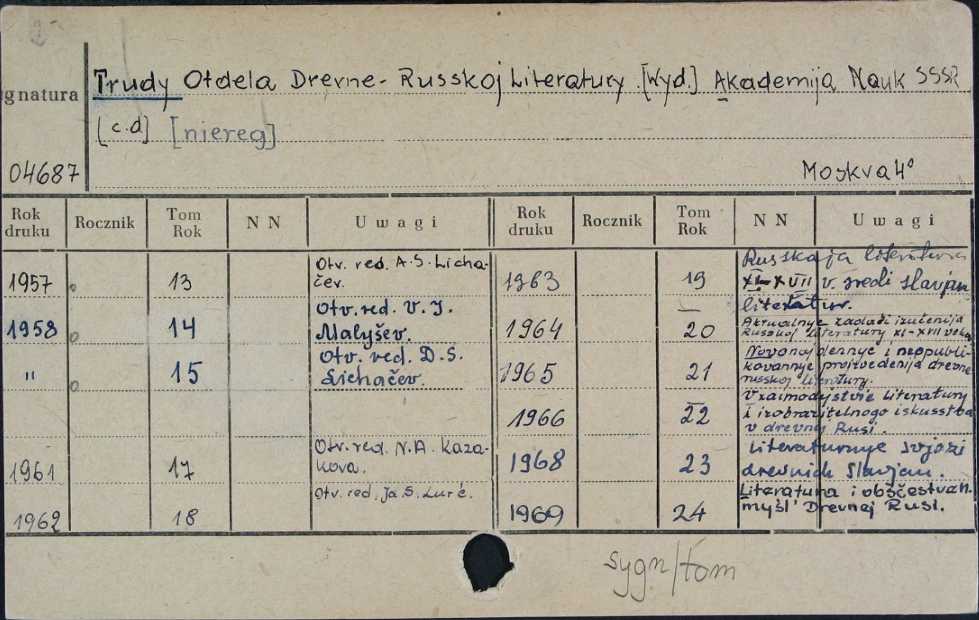 Trudy Otdela Drevne-Russkoj Literatury. [Wyd.] Akademija Nauk SSSR
gnatura
[c.d] [niereg]
04687
Moskva 4°
Rok druku Rocznik Tom Rok NN Uwagi Rok druku Rocznik Tom Rok NN Uwagi
1957 13 Otv. red. A.S. Lichačev.
1958 14 Otv. red. V. I. Malyšev.
" 15 Otv. red. D.S. Lichačev.
1961 17 Otv. red. N.A. Kazakova.
1962 18 Otv. red. Ja. S. Lur'e.
1963 19 Russkaja literatura XI-XVII v. sredi slavjan literatur.
1964 20 Aktualnye zadači izučenija russkoj literatury XI-XVII veka
1965 21 Novonajdennye i neopublikovannye proizvedenija drevne russkoj literatury.
1966 22 Vzaimodystvie literatury i izobrazitelnogo iskusstva v drevnej Rusi.
1968 23 Literaturnye svjazi drevnich slavjan.
1969 24 Literatura i obščestven. mysl' Drevnej Rusi.
sygn/tom